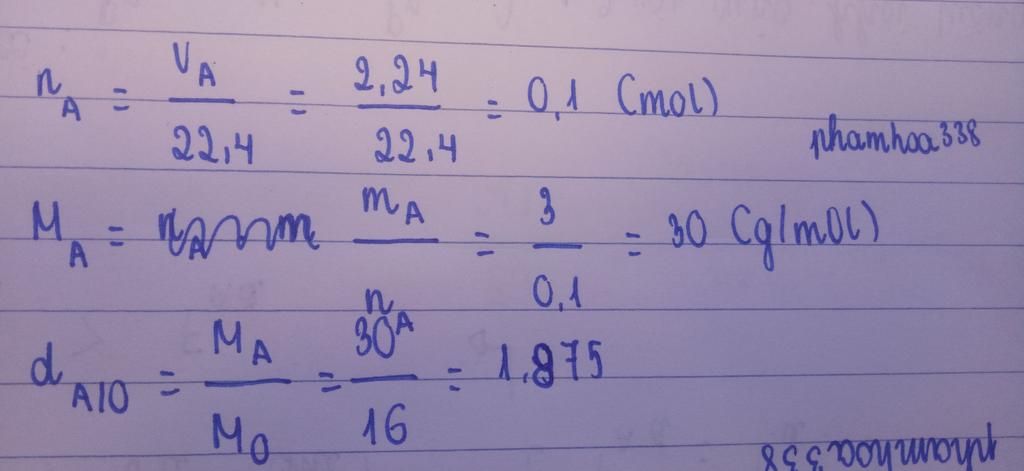 n_A = V_A / 22,4 = 2,24 / 22,4 = 0,1 (mol)
phamhoa338
M_A = m_A / n_A = 3 / 0,1 = 30 (g/mol)
d_A/O = M_A / M_O = 30 / 16 = 1,875
phamhoa338